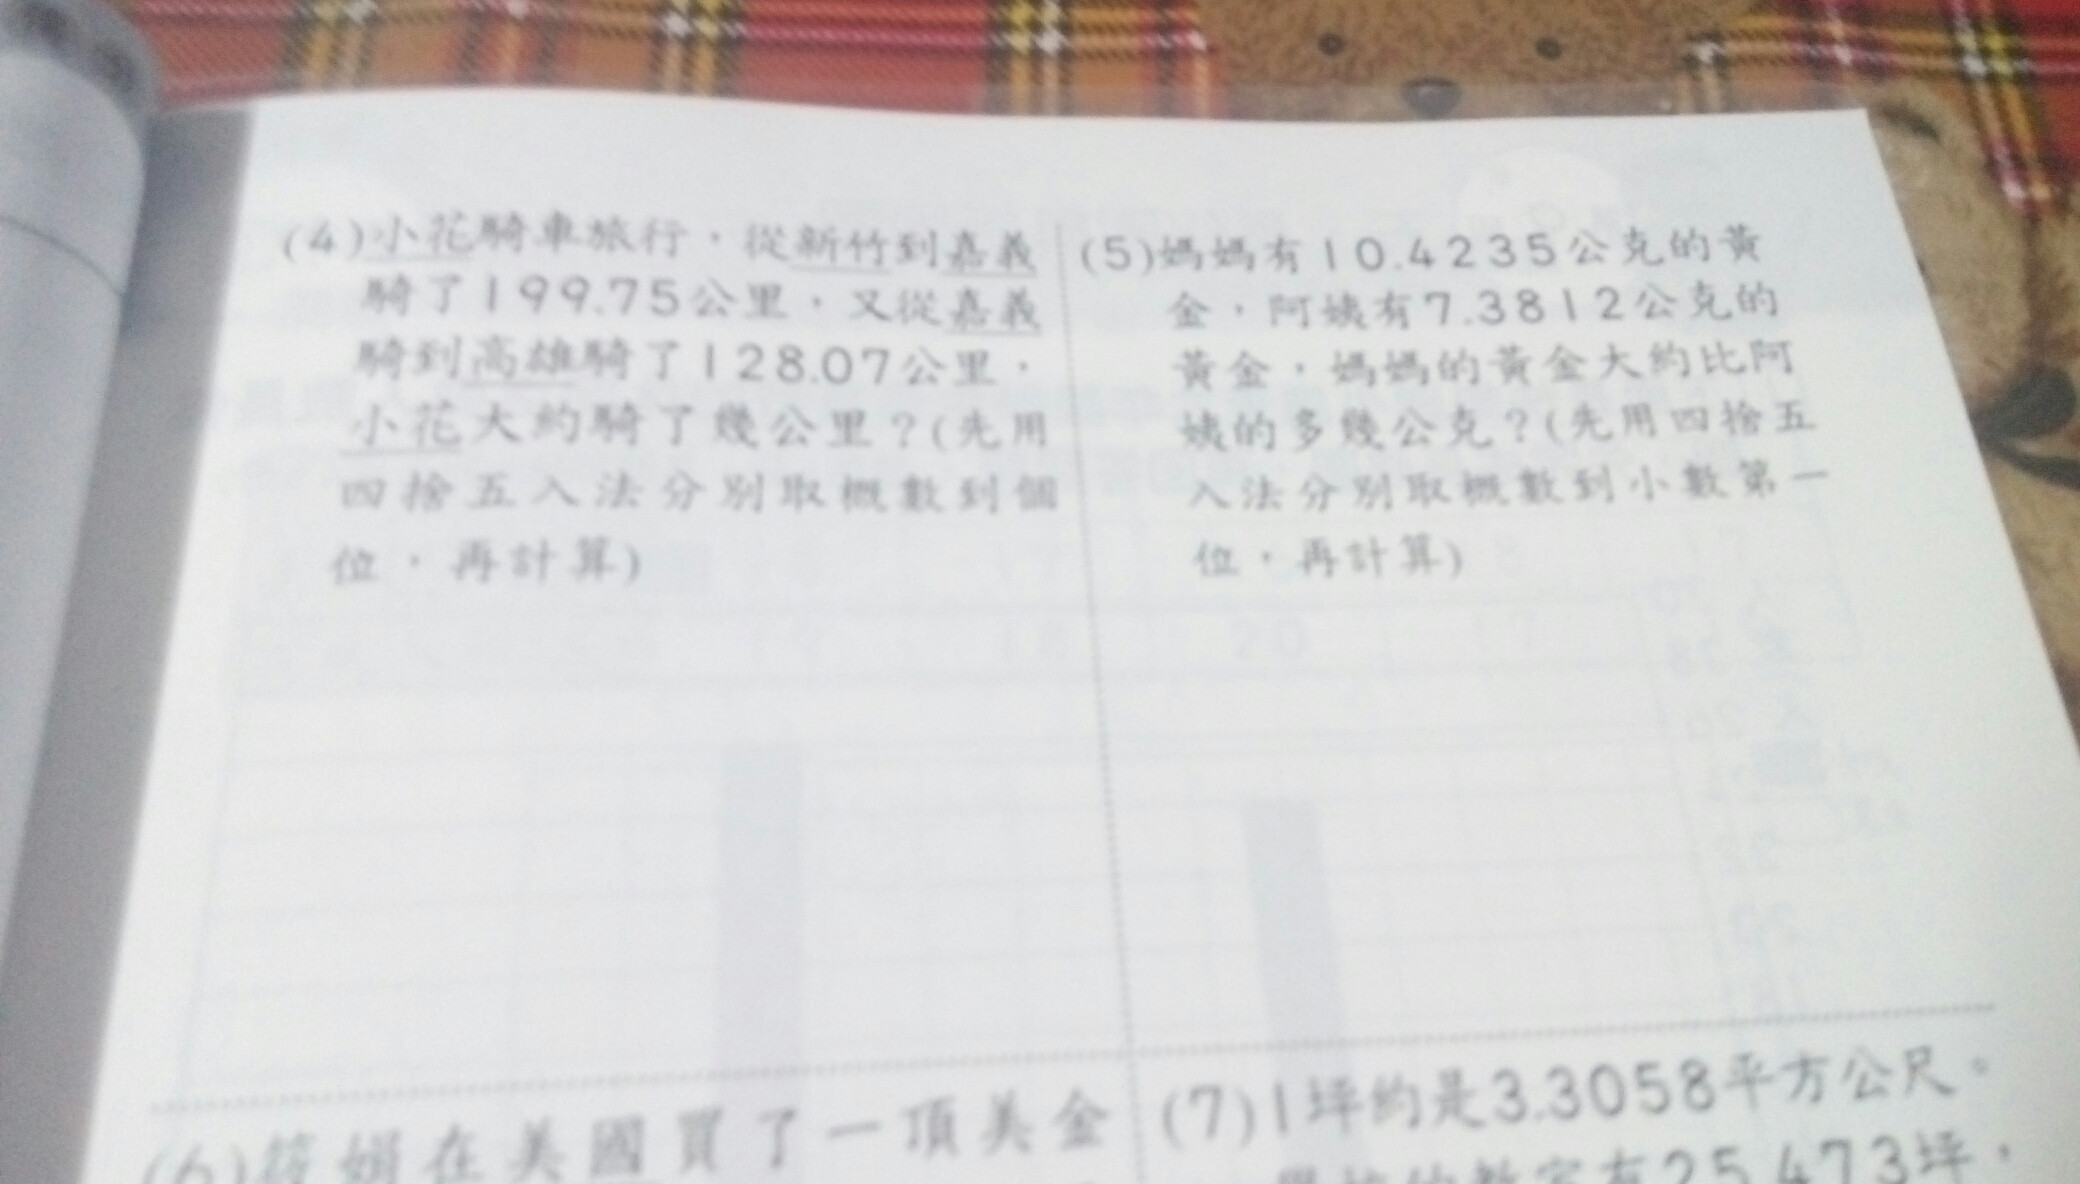 (4)小花騎車旅行，從新竹到嘉義
騎了199.75公里，又從嘉義
騎到高雄騎了128.07公里，
小花大約騎了幾公里？(先用
四捨五入法分別取概數到個
位，再計算)
(5)媽媽有10.4235公克的黃
金，阿姨有7.3812公克的
黃金，媽媽的黃金大約比阿
姨的多幾公克？(先用四捨五
入法分別取概數到小數第一
位，再計算)
(6)筱娟在美國買了一頂美金
(7)1坪約是3.3058平方公尺。
學校的教室有25.473坪，